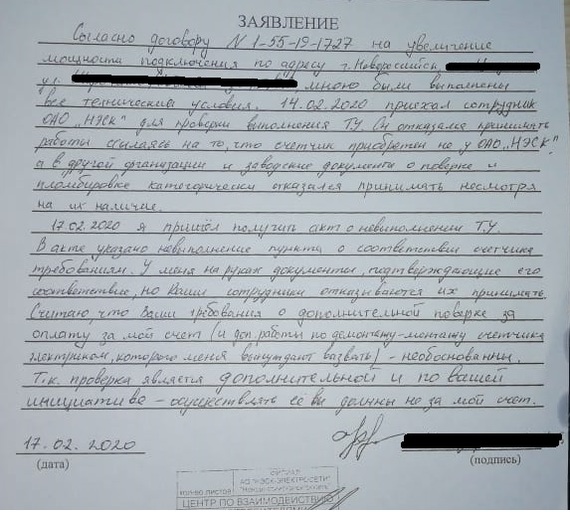 ЗАЯВЛЕНИЕ
Согласно договору N 1-55-19-1727 на увеличение
мощности подключения по адресу г. Новороссийск
ул. мною были выполнены
все технические условия. 14.02.2020 приехал сотрудник
ОАО „НЭСК" для проверки выполнения Т.У. Он отказался принимать
работы ссылаясь на то, что счетчик приобретен не у ОАО „НЭСК",
а в другой организации и заводские документы о поверке и
пломбировке категорически отказался принимать несмотря
на их наличие.
17.02.2020 я пришёл получить акт о невыполнении Т.У.
В акте указано невыполнение пункта о соответствии счетчика
требованиям. У меня на руках документы, подтверждающие его
соответствие, но Ваши сотрудники отказываются их принимать
Считаю, что Ваши требования о дополнительной поверке за
оплату за мой счет (и доп. работы по демонтажу-монтажу счетчика
электриком, которого меня вынуждают вызвать) - необоснованны.
Т.к. проверка является дополнительной и по вашей
инициативе - осуществлять ее вы должны не за мой счет.
17.02.2020
(дата)
(подпись)
ФИЛИАЛ
АО «НЭСК-ЭЛЕКТРОСЕТИ»
кол-во листов
ЦЕНТР ПО ВЗАИМОДЕЙСТВИЮ